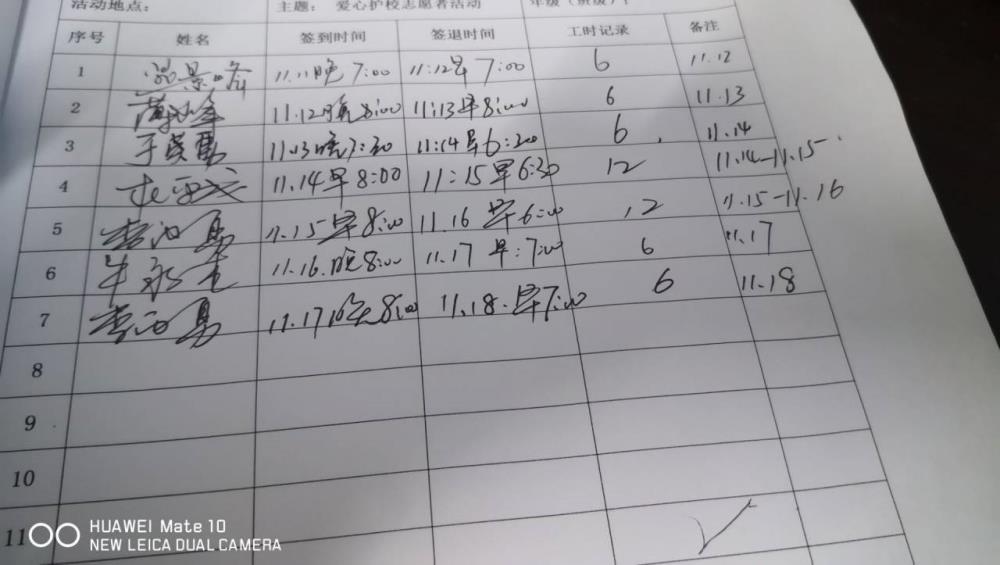 活动地点： 主题： 爱心护校志愿者活动 年级（班级）：
序号 姓名 签到时间 签退时间 工时记录 备注
1 11.11晚7:00 11:12早7:00 6 11.12
2 11.12晚8:00 11:13早8:00 6 11.13
3 11.13晚7:30 11:14早6:200 6 11.14
4 11.14早8:00 11:15早6:30 12 11.14-11.15
5 11.15早8:00 11.16早6:00 12 11.15-11.16
6 牛永 11.16.晚8:00 11.17早:7:00 6 11.17
7 11.17晚8:00 11.18.早7:00 6 11.18
8
9
10
11
HUAWEI Mate 10
NEW LEICA DUAL CAMERA